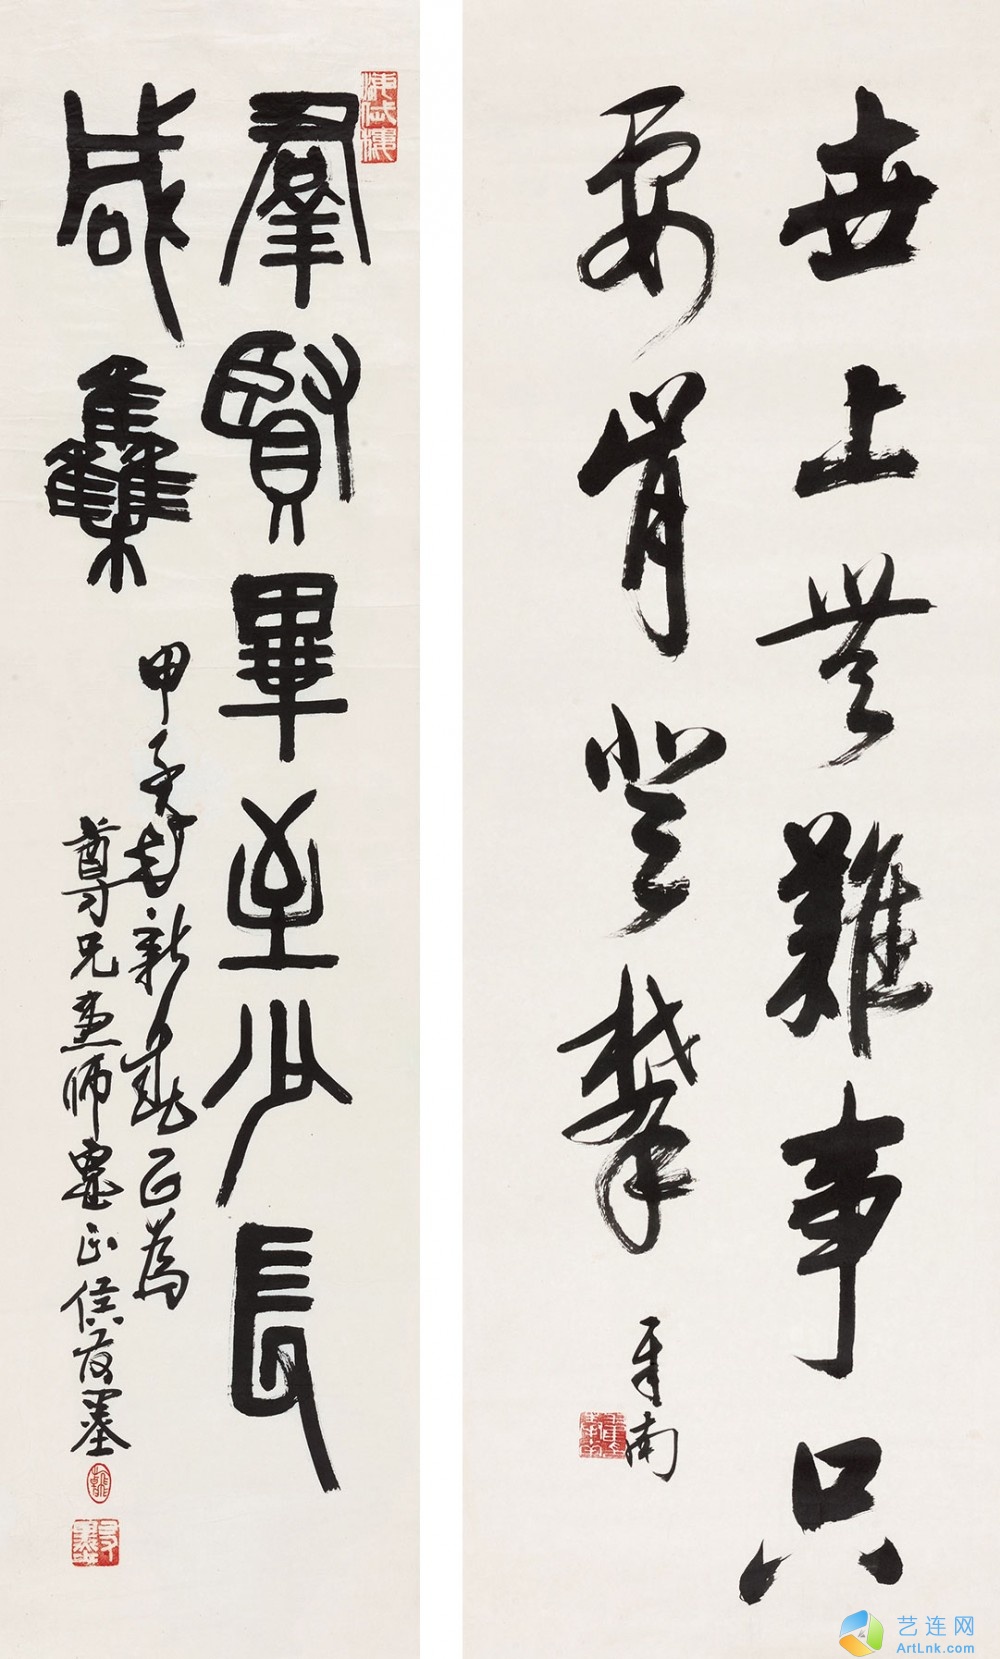 世上無難事只
要肯登攀
南
羣賢畢至少長
咸集
甲子新春為
尊兄畫師正侯墨
艺连网
ArtLnk.com